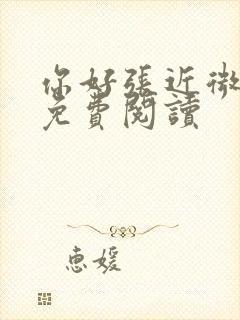 你好張近微
免費閱讀
惠媛